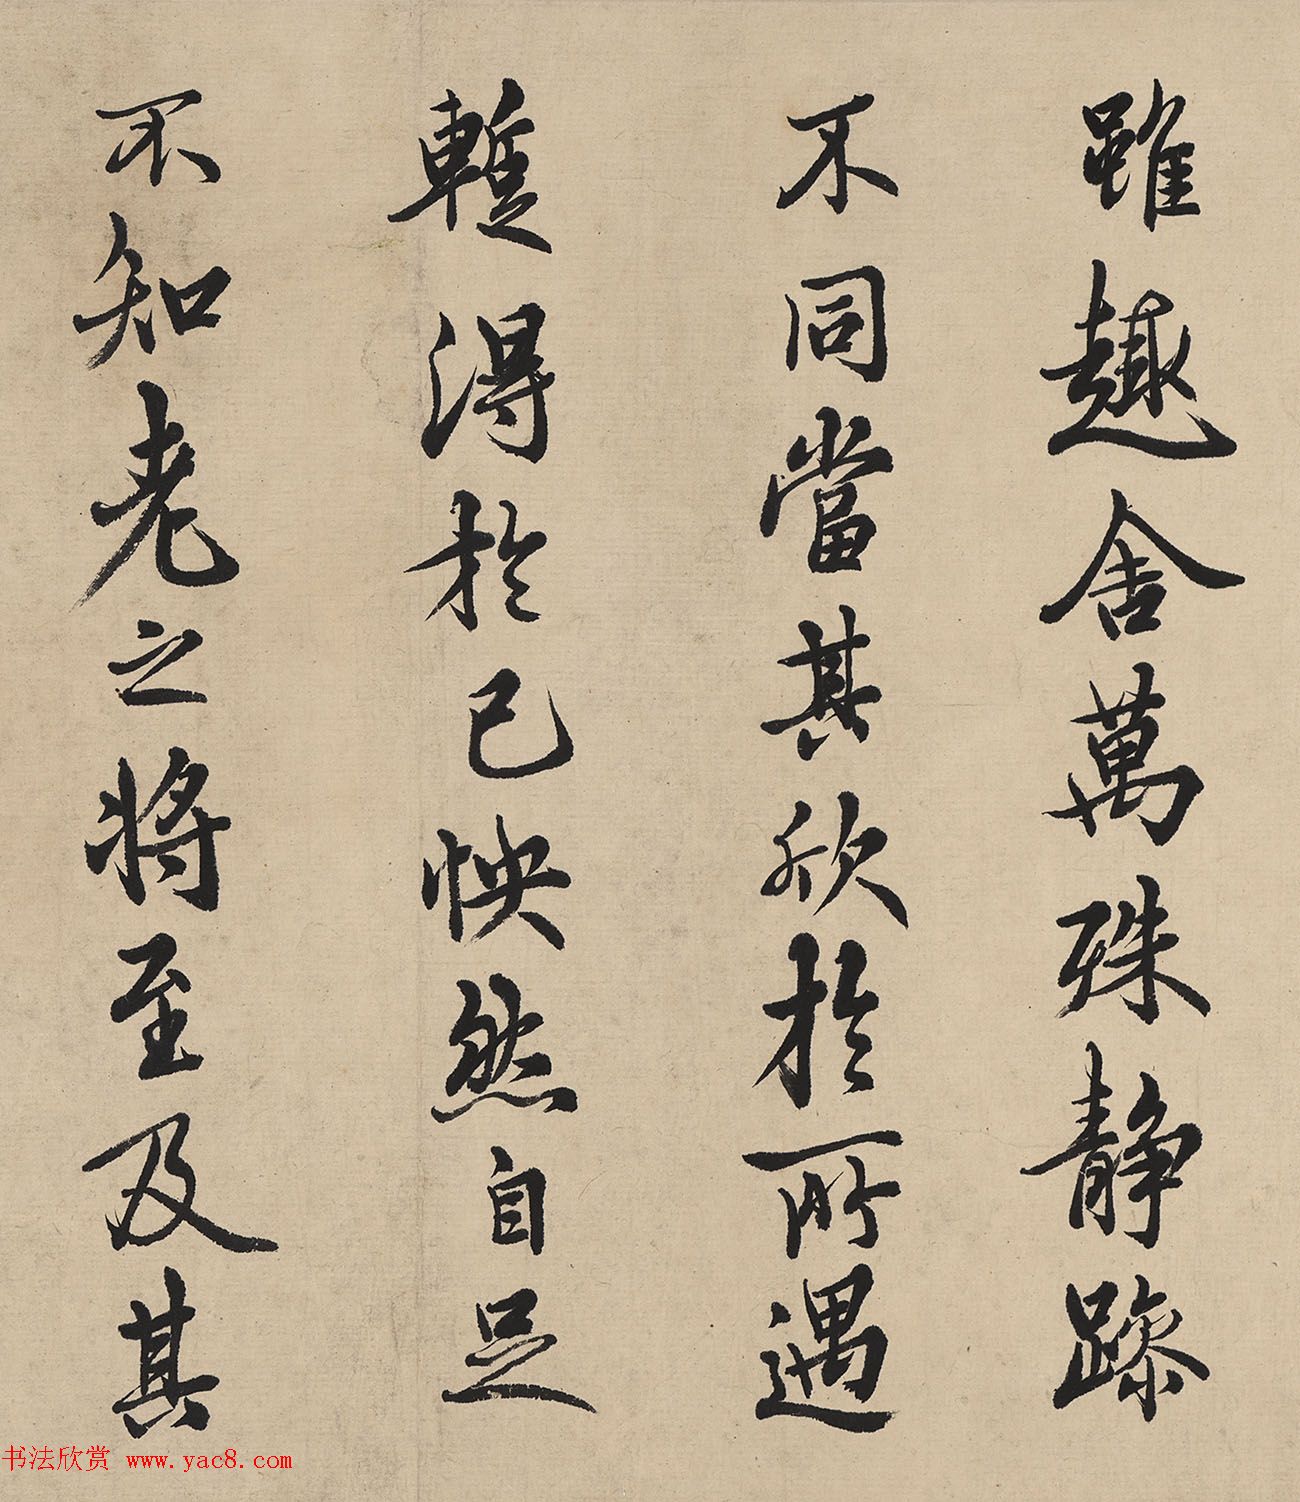 雖趣舍萬殊靜躁
不同當其欣於所遇
蹔得於己怏然自足
不知老之將至及其
书法欣赏 www.yac8.com